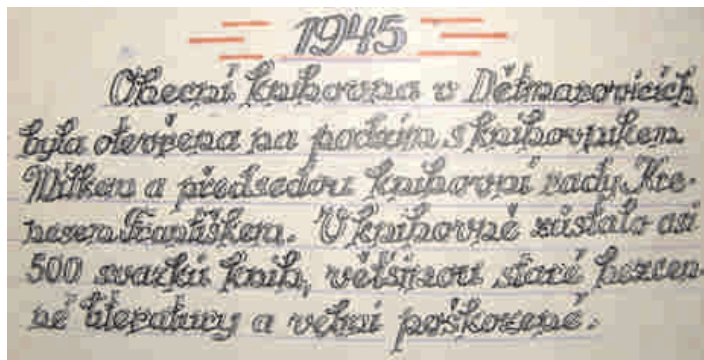 1945
Obecní knihovna v Dětmarovicích
byla otevřena na podzim s knihovníkem
Mílkem a předsedou knihovní rady Kre-
nesem Františkem. V knihovně zůstalo asi
500 svazků knih, většinou staré bezcen-
né literatury a velmi poškozené.